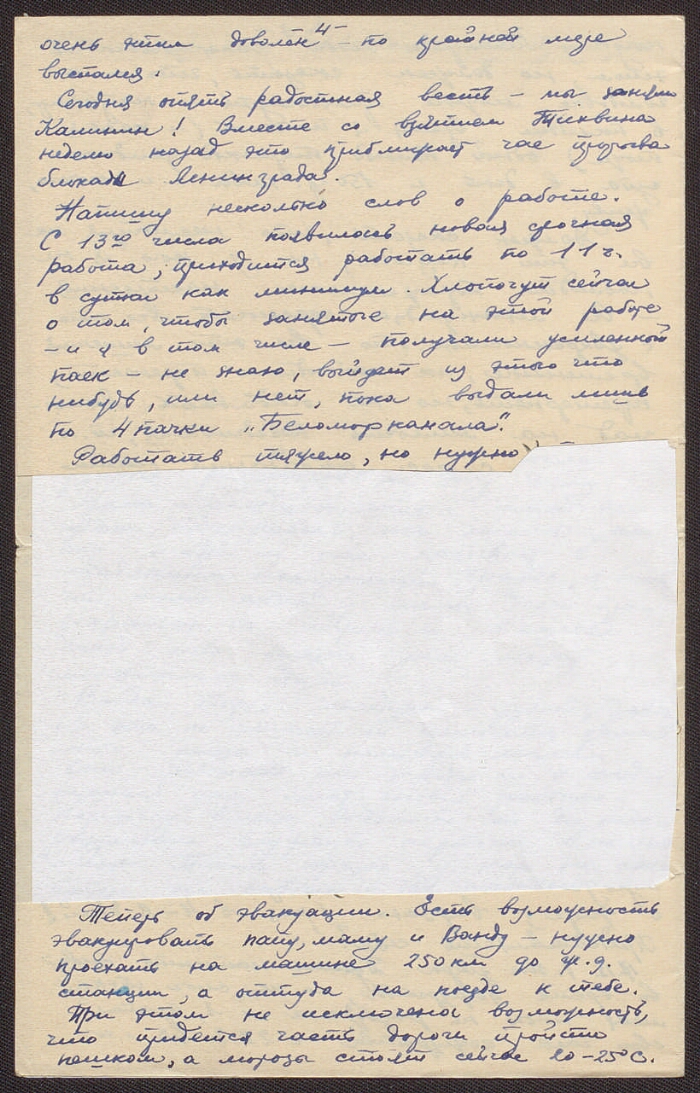 -4-
очень этим доволен - по крайней мере
выспался.
Сегодня опять радостная весть - мы заняли
Калинин! Вместе со взятием Тихвина
неделю назад это приближает час прорыва
блокады Ленинграда.
Напишу несколько слов о работе.
С 13го числа появилась новая срочная
работа, приходится работать по 11 ч.
в сутки как минимум. Хлопочут сейчас
о том, чтобы занятые на этой работе
- и я в том числе - получали усиленный
паек - не знаю, выйдет из этого что
нибудь, или нет, пока выдали лишь
по 4 пачки „Беломорканала".
Работать тяжело, но нужно
Теперь об эвакуации. Есть возможность
эвакуировать папу, маму и Ванду - нужно
проехать на машине 250 км. до ж.д.
станции, а оттуда на поезде к тебе.
При этом не исключена возможность,
что придется часть дороги пройти
пешком, а морозы стоят сейчас 20-25°С.